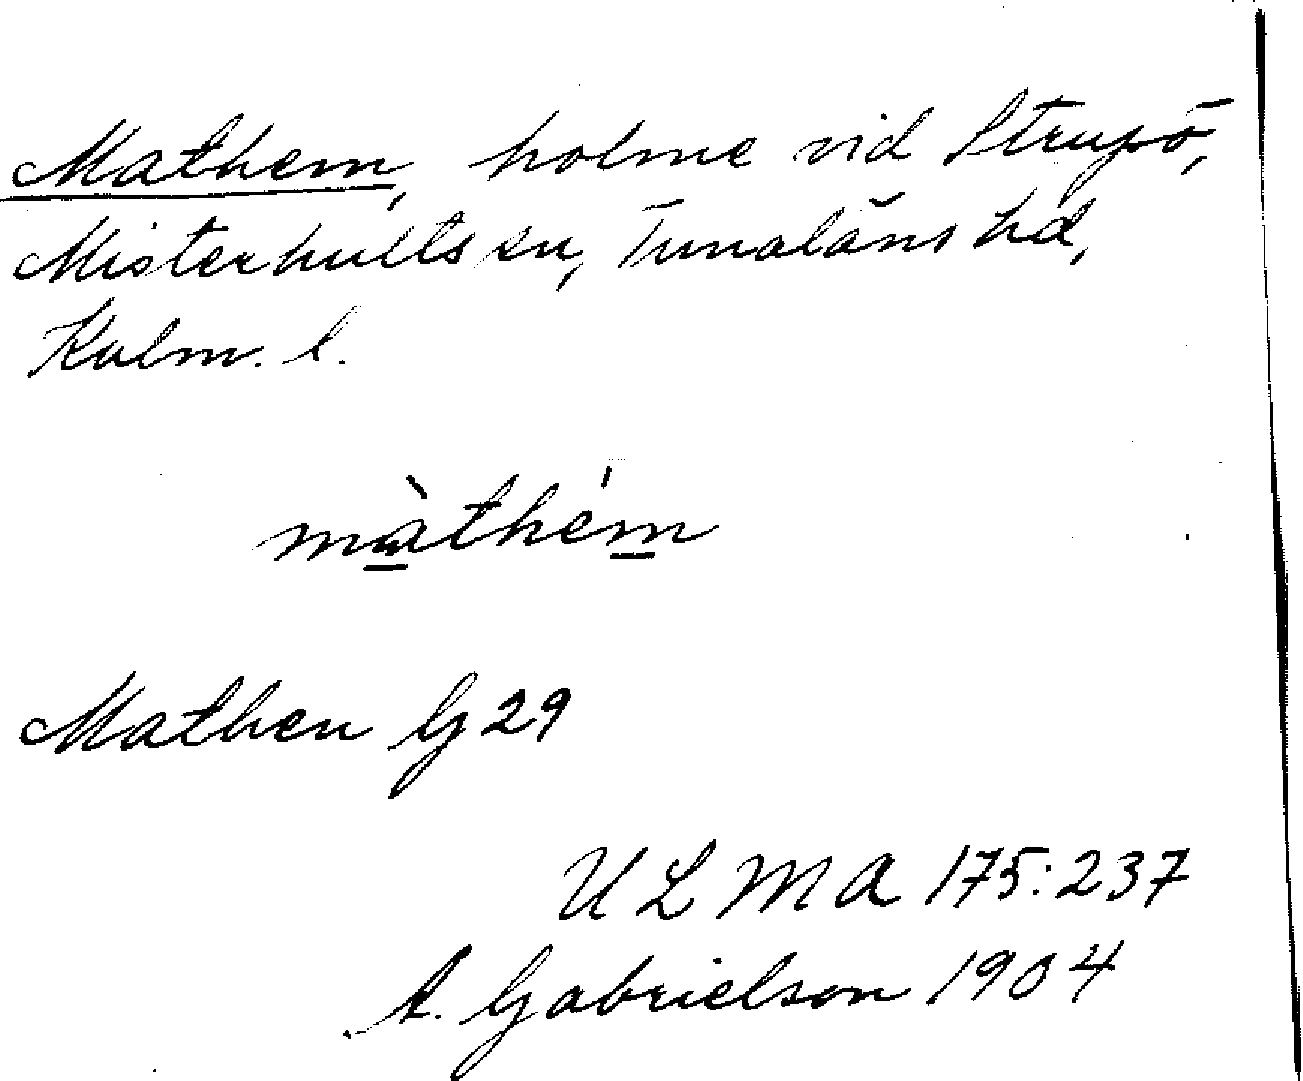 Mathem, holme vid Strupö,
Misterhults sn, Tunaläns hd,
Kalm. l.
màthém
Mathen G 29
U L M A 175:237
A. Gabrielson 1904